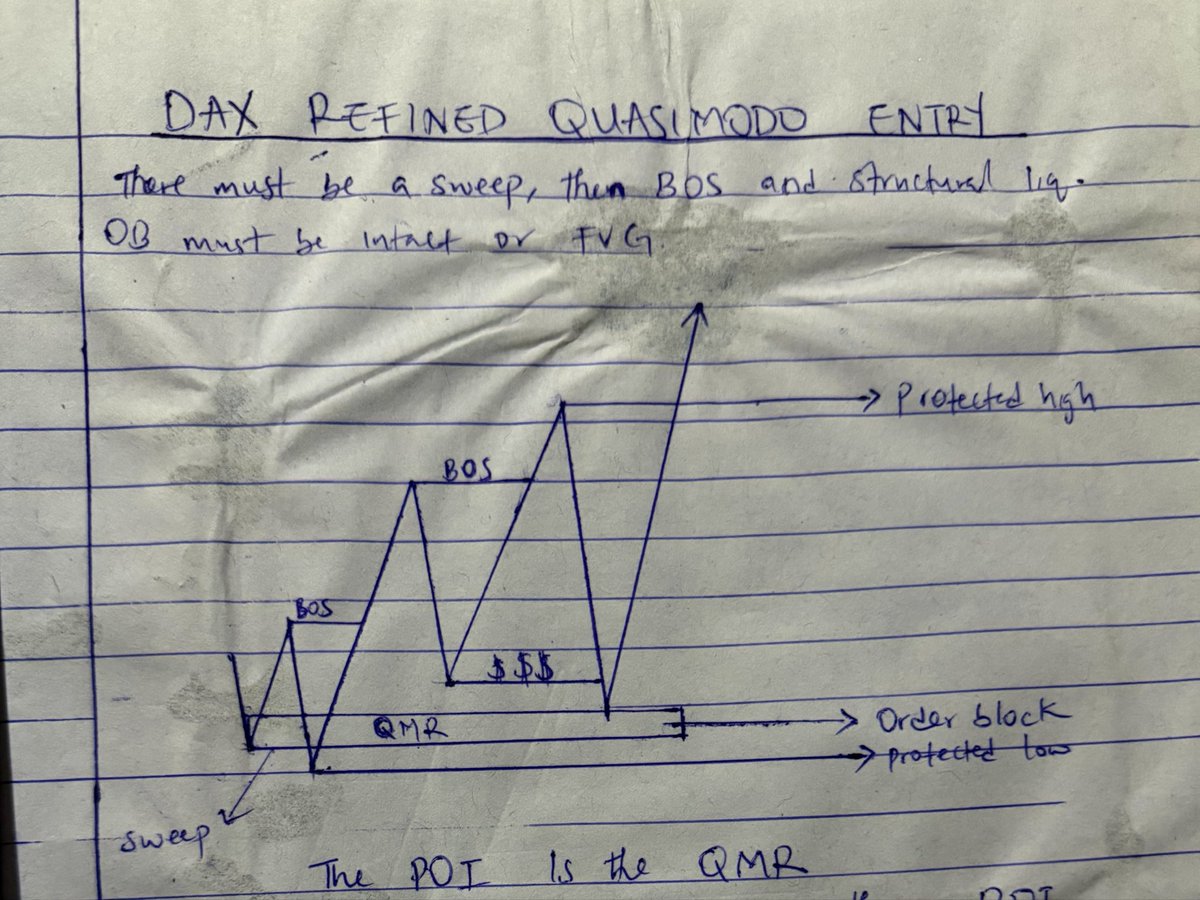 DAX REFINED QUASIMODO ENTRY
There must be a sweep, then BOS and structural liq.
OB must be intact or FVG.
Protected high
BOS
BOS
$$$
QMR
Order block
protected low
sweep
The POI is the QMR
POI